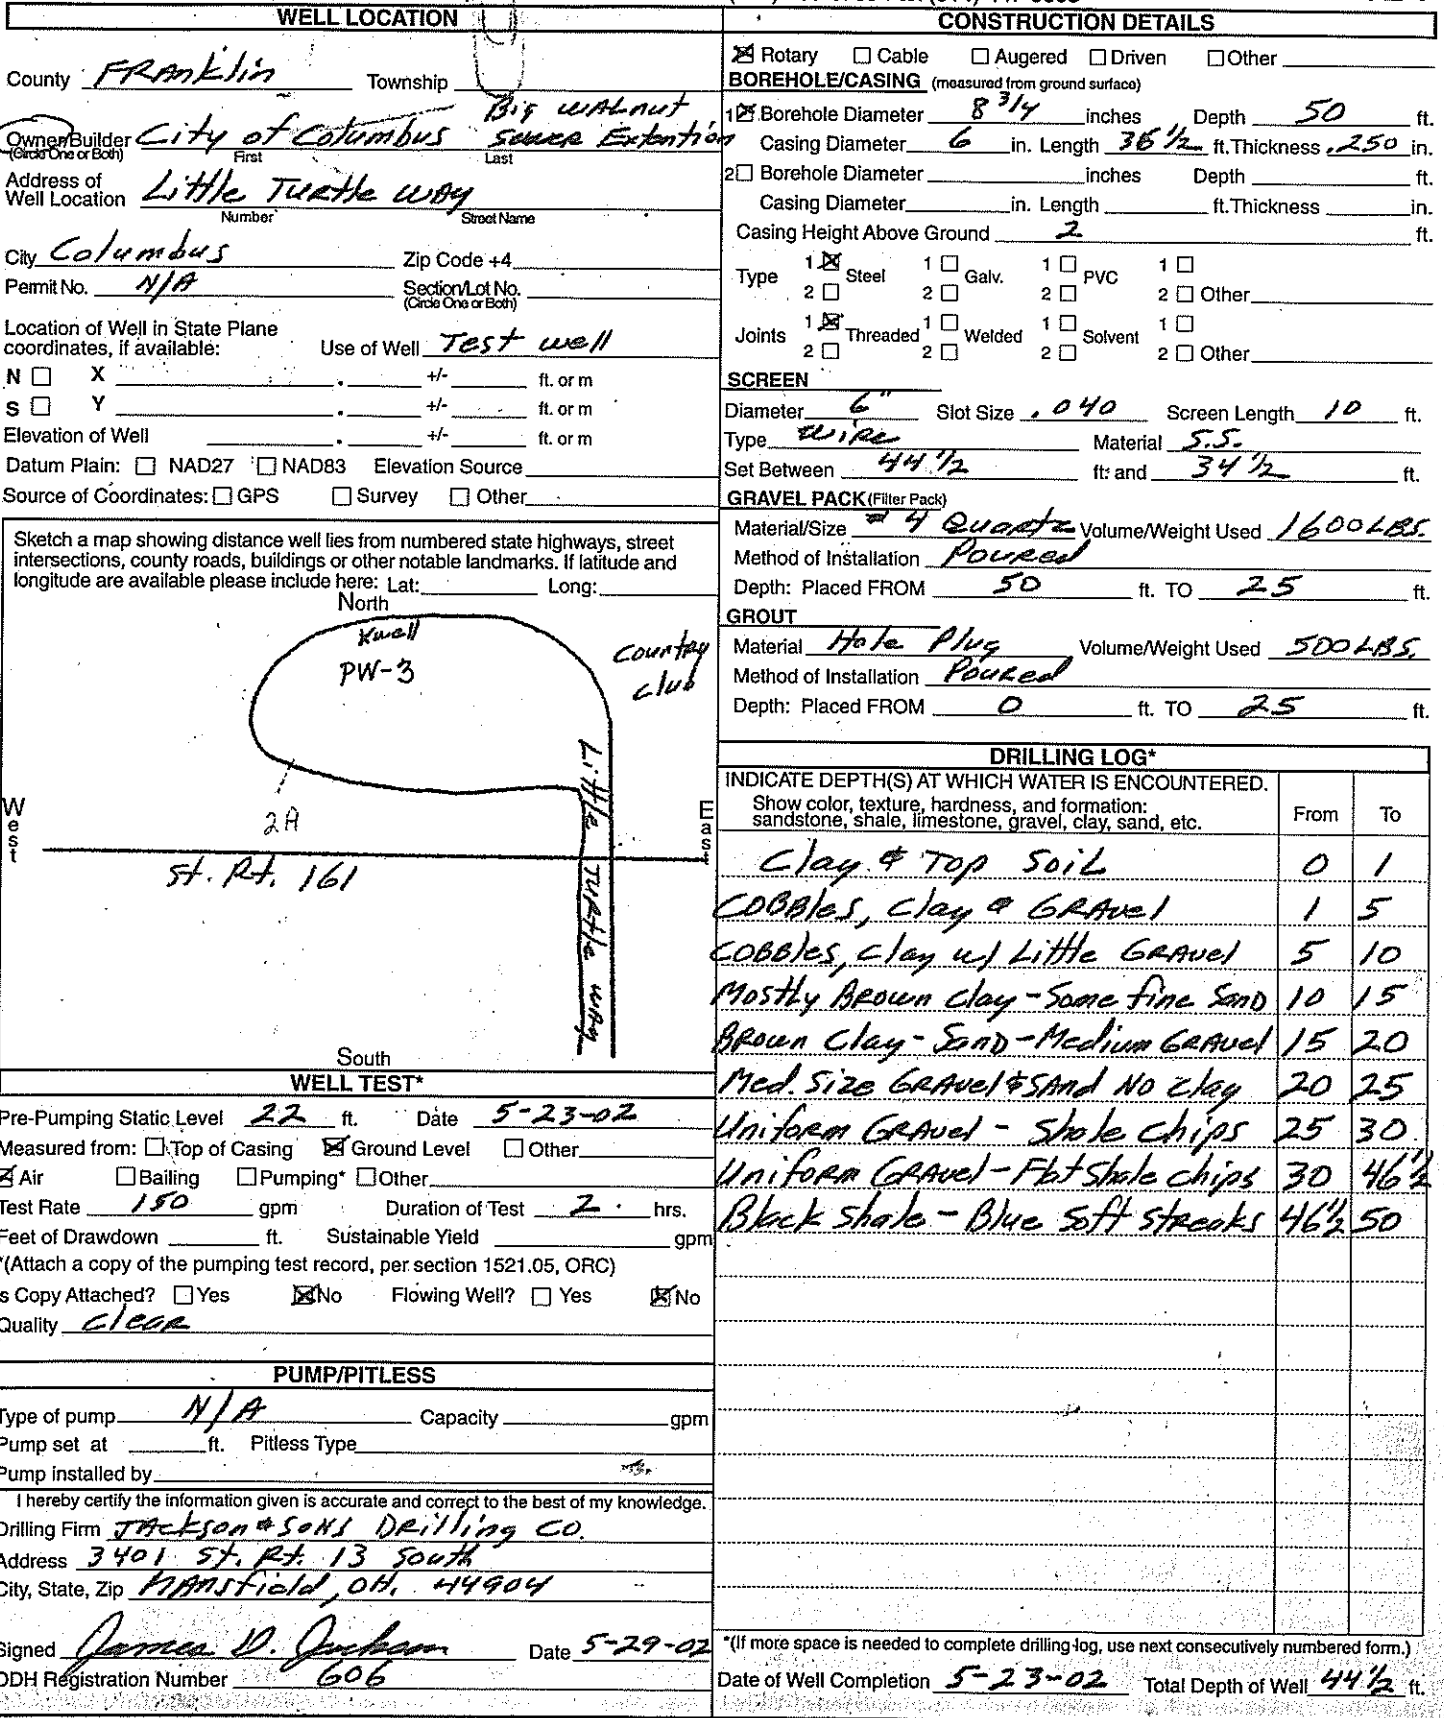 WELL LOCATION
County FRAnklin Township
Owner/Builder City of Columbus Big WALnut Sewer Extention
(Circle One or Both) First Last
Address of
Well Location Little Turtle way
Number Street Name
City Columbus Zip Code +4
Permit No. N/A Section/Lot No.
(Circle One or Both)
Location of Well in State Plane
coordinates, if available: Use of Well Test well
N ☐ X . +/- ft. or m
S ☐ Y . +/- ft. or m
Elevation of Well . +/- ft. or m
Datum Plain: ☐ NAD27 ☐ NAD83 Elevation Source
Source of Coordinates: ☐ GPS ☐ Survey ☐ Other
Sketch a map showing distance well lies from numbered state highways, street
intersections, county roads, buildings or other notable landmarks. If latitude and
longitude are available please include here: Lat: Long:
North
Xwell
PW-3
Country
club
2A
West
East
St. Rt. 161
Little Turtle way
South
WELL TEST*
Pre-Pumping Static Level 22 ft. Date 5-23-02
Measured from: ☐ Top of Casing ☒ Ground Level ☐ Other
☒ Air ☐ Bailing ☐ Pumping* ☐ Other
Test Rate 150 gpm Duration of Test 2 hrs.
Feet of Drawdown ft. Sustainable Yield gpm
*(Attach a copy of the pumping test record, per section 1521.05, ORC)
Is Copy Attached? ☐ Yes ☒ No Flowing Well? ☐ Yes ☒ No
Quality Clear
PUMP/PITLESS
Type of pump N/A Capacity gpm
Pump set at ft. Pitless Type
Pump installed by
I hereby certify the information given is accurate and correct to the best of my knowledge.
Drilling Firm JAckson & SoNs DRilling CO.
Address 3401 St. Rt. 13 South
City, State, Zip MANsfield, OH. 44904
Signed James D. Jackson Date 5-29-02
ODH Registration Number 606
CONSTRUCTION DETAILS
☒ Rotary ☐ Cable ☐ Augered ☐ Driven ☐ Other
BOREHOLE/CASING (measured from ground surface)
1 ☒ Borehole Diameter 8 3/4 inches Depth 50 ft.
Casing Diameter 6 in. Length 36 1/2 ft. Thickness .250 in.
2 ☐ Borehole Diameter inches Depth ft.
Casing Diameter in. Length ft. Thickness in.
Casing Height Above Ground 2 ft.
Type 1 ☒ Steel 1 ☐ Galv. 1 ☐ PVC 1 ☐
2 ☐ 2 ☐ 2 ☐ 2 ☐ Other
Joints 1 ☒ Threaded 1 ☐ Welded 1 ☐ Solvent 1 ☐
2 ☐ 2 ☐ 2 ☐ 2 ☐ Other
SCREEN
Diameter 6" Slot Size .040 Screen Length 10 ft.
Type WiRe Material S.S.
Set Between 44 1/2 ft. and 34 1/2 ft.
GRAVEL PACK (Filter Pack)
Material/Size # 4 Quartz Volume/Weight Used 1600 LBS.
Method of Installation Poured
Depth: Placed FROM 50 ft. TO 25 ft.
GROUT
Material Hole Plug Volume/Weight Used 500 LBS.
Method of Installation Poured
Depth: Placed FROM 0 ft. TO 25 ft.
DRILLING LOG*
INDICATE DEPTH(S) AT WHICH WATER IS ENCOUNTERED.
Show color, texture, hardness, and formation:
sandstone, shale, limestone, gravel, clay, sand, etc. From To
Clay & Top Soil 0 1
COBBles, Clay & GRAvel 1 5
COBBles, Clay w/ Little GRAvel 5 10
Mostly Brown Clay - Some fine Sand 10 15
Brown Clay - Sand - Medium GRAvel 15 20
Med. Size GRAvel & SAnd No Clay 20 25
Uniform GRAvel - Shale Chips 25 30
Uniform GRAvel - Flat Shale chips 30 46 1/2
Black Shale - Blue Soft Streaks 46 1/2 50
*(If more space is needed to complete drilling log, use next consecutively numbered form.)
Date of Well Completion 5-23-02 Total Depth of Well 44 1/2 ft.